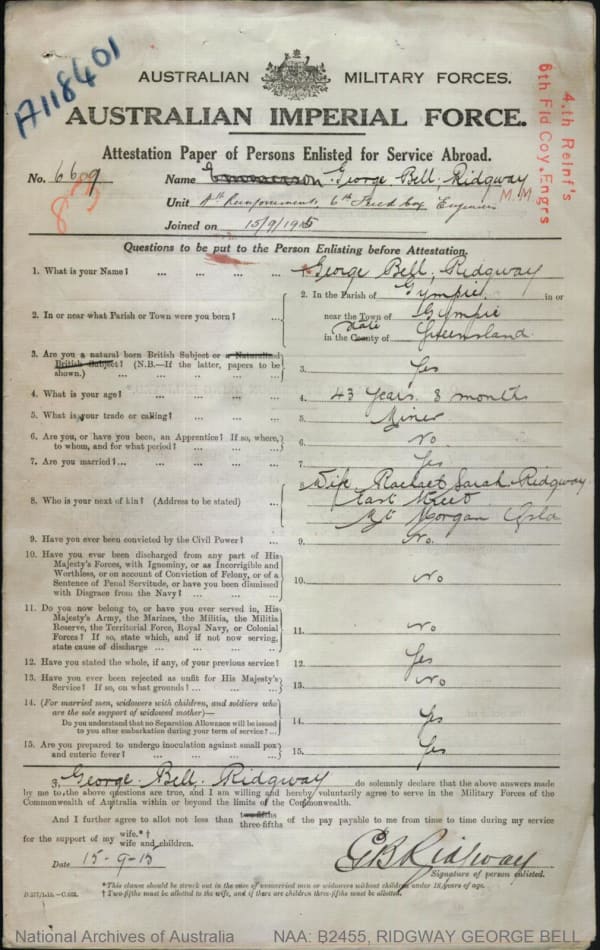 A118401
AUSTRALIAN MILITARY FORCES.
AUSTRALIAN IMPERIAL FORCE.
4.th Reinf's
6th Fld Coy. Engrs
Attestation Paper of Persons Enlisted for Service Abroad.
No. 6609 Name George Bell, Ridgway
M.M
Unit 4th Reinforcements, 6th Field Coy Engineers
Joined on 15/9/1915
Questions to be put to the Person Enlisting before Attestation.
1. What is your Name? ... ... ... ... 1. George Bell, Ridgway
2. In or near what Parish or Town were you born? ... 2. In the Parish of Gympie in or
near the Town of Gympie
in the County of State Queensland
3. Are you a natural born British Subject or a Naturalized
British Subject? (N.B.—If the latter, papers to be
shown.) ... ... ... ... ... 3. Yes
4. What is your age? ... ... ... ... 4. 43 years 8 months
5. What is your trade or calling? ... ... ... 5. Miner
6. Are you, or have you been, an Apprentice? If so, where,
to whom, and for what period? ... ... ... 6. No
7. Are you married? ... ... ... ... 7. Yes
8. Who is your next of kin? (Address to be stated) ... 8. Wife Rachael Sarah Ridgway
East Street
Mt Morgan Qsld
9. Have you ever been convicted by the Civil Power? ... 9. No.
10. Have you ever been discharged from any part of His
Majesty's Forces, with Ignominy, or as Incorrigible and
Worthless, or on account of Conviction of Felony, or of a
Sentence of Penal Servitude, or have you been dismissed
with Disgrace from the Navy? ... ... ... 10. No
11. Do you now belong to, or have you ever served in, His
Majesty's Army, the Marines, the Militia, the Militia
Reserve, the Territorial Force, Royal Navy, or Colonial
Forces? If so, state which, and if not now serving,
state cause of discharge ... ... ... ... 11. No
12. Have you stated the whole, if any, of your previous service? 12. Yes
13. Have you ever been rejected as unfit for His Majesty's
Service? If so, on what grounds? ... ... ... 13. No
14. (For married men, widowers with children, and soldiers who
are the sole support of widowed mother)—
Do you understand that no Separation Allowance will be issued
to you after embarkation during your term of service? ... 14. Yes
15. Are you prepared to undergo inoculation against small pox
and enteric fever? ... ... ... ... 15. Yes
I, George Bell. Ridgway do solemnly declare that the above answers made
by me to the above questions are true, and I am willing and hereby voluntarily agree to serve in the Military Forces of the
Commonwealth of Australia within or beyond the limits of the Commonwealth.
And I further agree to allot not less than two-fifths three-fifths of the pay payable to me from time to time during my service
for the support of my wife.*† wife and children.
Date 15-9-15 G B Ridgway
Signature of person enlisted.
*This clause should be struck out in the case of unmarried men or widowers without children under 18 years of age.
† Two-fifths must be allotted to the wife, and if there are children three-fifths must be allotted.
National Archives of Australia NAA: B2455, RIDGWAY GEORGE BELL